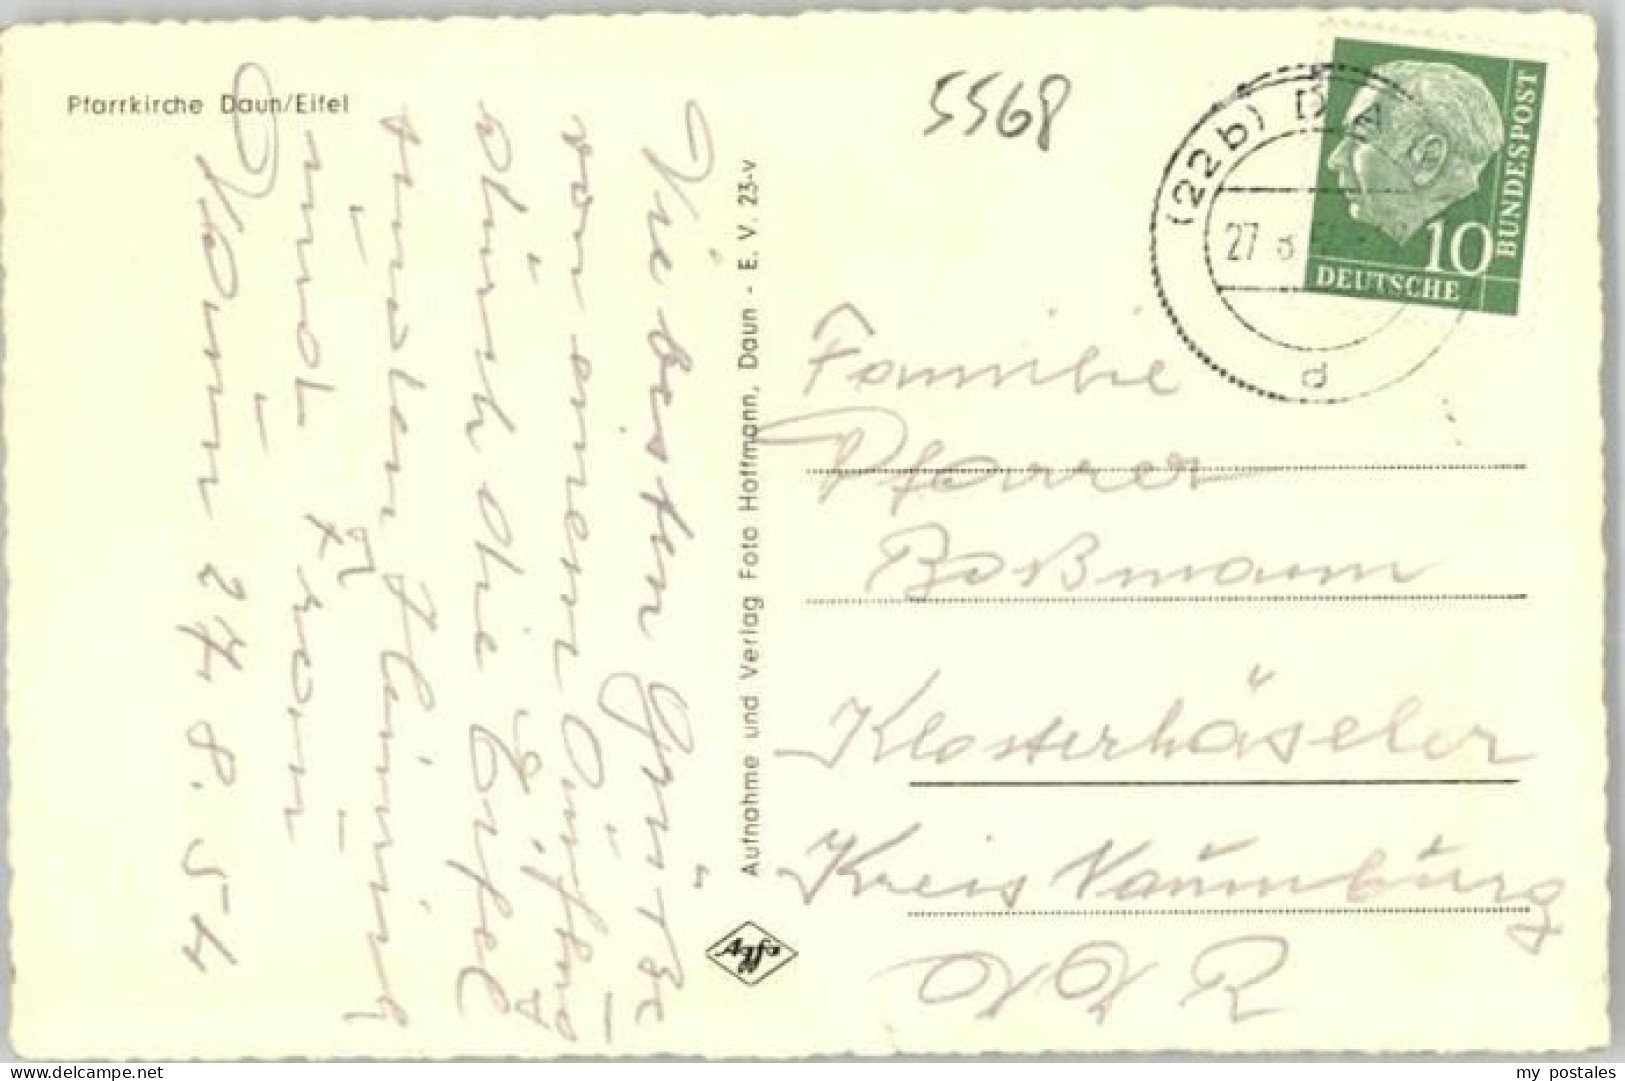 Pfarrkirche Daun/Eifel
5568
(22b) DA
27 8
d
10
DEUTSCHE
BUNDESPOST
Die besten Grüße
von einem Ausflug
durch die Eifel
senden Heinrich
und
Daun 27. 8. 54
Aufnahme und Verlag Foto Hoffmann, Daun - E. V. 23-v
Agfa
Familie
Pfarrer
Boßmann
Klosterhäseler
Kreis Naumburg
DDR
delcampe.net
my_postales